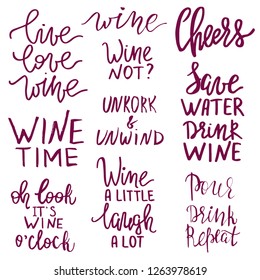 live
love
wine
WINE
TIME
oh look
IT'S
WINE
o'clock
wine
Wine
NOT?
UNKORK
& UNWIND
Wine
A LITTLE
laugh
A LOT
Cheers
Save
WATER
DRINK
WINE
Pour
Drink
Repeat
shutterstock.com · 1263978619